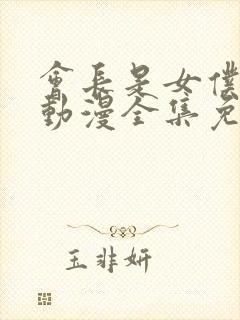 會長是女僕
動漫全集免
玉非妍